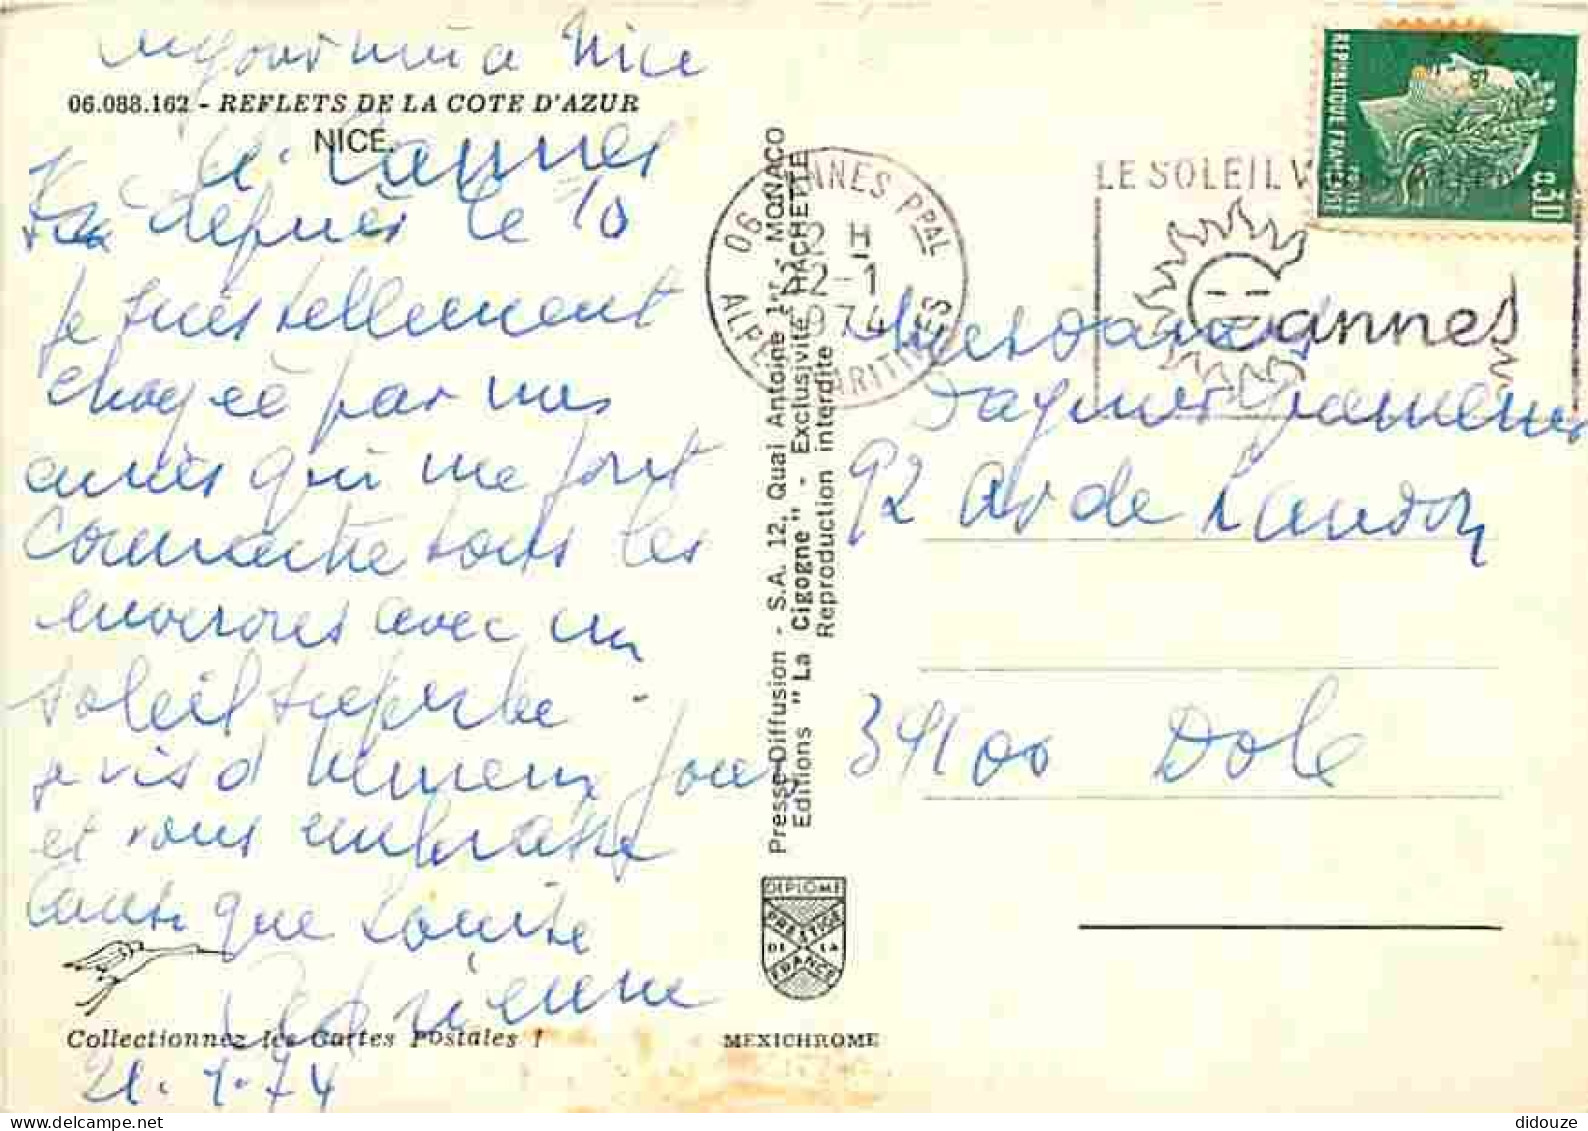 a Nice
06.088.162 - REFLETS DE LA COTE D'AZUR
NICE.
Cannes
depuis le 10
je suis tellement
choyée par mes
amies qui me font
connaitre tous les
environs avec un
soleil superbe -
et vous embrasse
que Louise
Adrienne
Collectionnez les Cartes Postales !
21.1.74
Presse-Diffusion - S.A. 12, Quai Antoine 1er - MONACO
Editions "La Cigogne" - Exclusivité HACHETTE
Reproduction interdite
DIPLOME
PRESTIGE
DE LA
FRANCE
MEXICHROME
06 CANNES PPAL
H
22-1
1974
ALPES MARITIMES
LE SOLEIL
Cannes
REPUBLIQUE FRANCAISE
POSTES
0,30
Mesdames
92 Av de Landon
39100 Dole
didouze